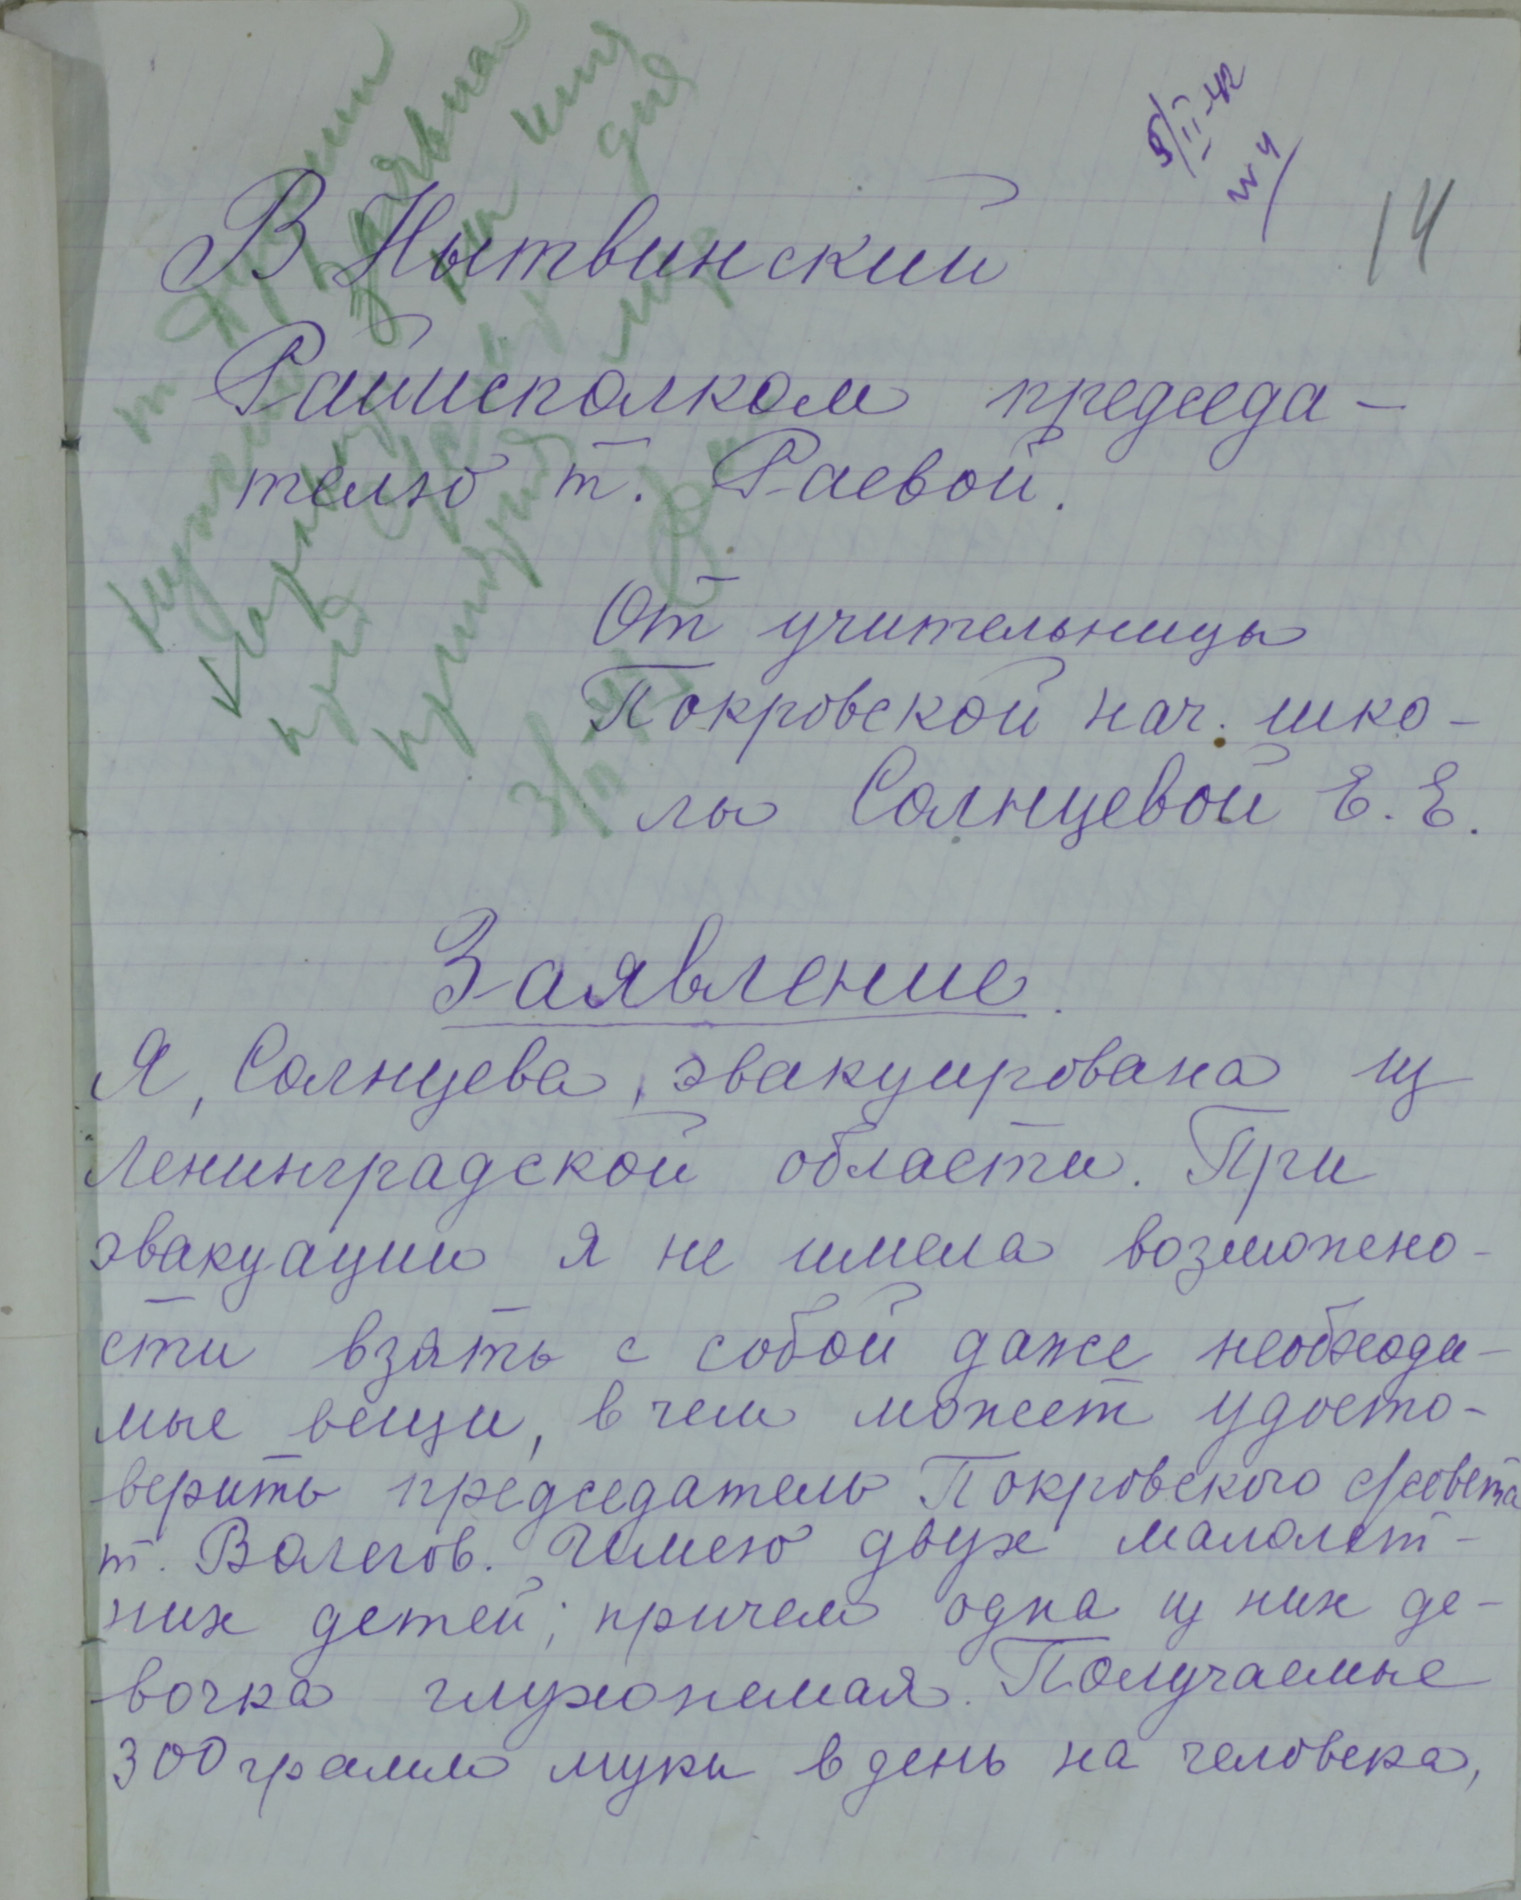 5/II-42
14
В Нытвинский
Райисполком председа-
телю т. Раевой.
От учительницы
Покровской нач. шко-
лы Солнцевой Е. Е.
Заявление.
Я, Солнцева, эвакуирована из
Ленинградской области. При
эвакуации я не имела возможно-
сти взять с собой даже необходи-
мые вещи, в чем может удосто-
верить председатель Покровского с/совета
т. Волегов. Имею двух малолет-
них детей; причем одна из них де-
вочка глухонемая. Получаемые
300 грамм муки в день на человека,